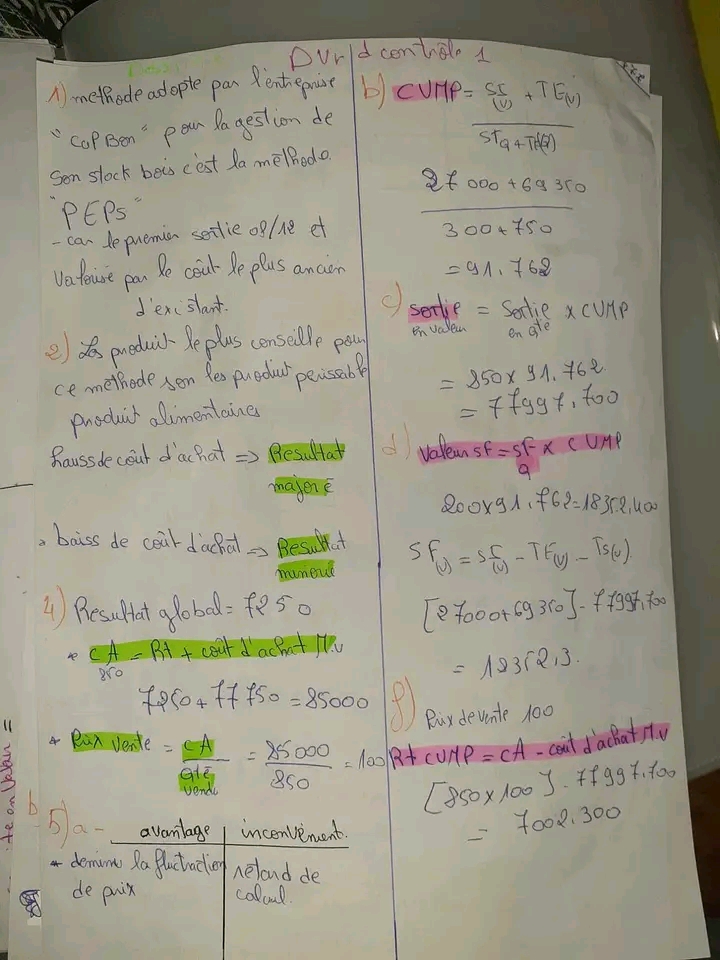 Dvr d contrôle 1
1) methode adopte par l'entreprise
"CopBon" pour la gestion de
son stock bois c'est la méthode.
"PEPs"
- car le premier sortie 08/12 et
Valorisé par le coût le plus ancien
d'existant.
2) Les produit le plus conseille pour
ce méthode son les produit perissable
produit alimentaires
hauss de coût d'achat => Resultat
majoré
- baiss de coût d'achat => Resultat
minoré
4) Resultat global = 7250
* CA = Rt + coût d'achat M.v
850
7250 + 77 750 = 85000
* Prix vente = CA / Qté vendu = 85000 / 850 = 100
5) a -
avantage | inconvénient.
* demine la fluctraction | retard de
de prix | calcul.
b) CUMP = SI(v) + TE(v)
SIQ + TE(Q)
27 000 + 69 350
300 + 750
= 91.762
c) sortie = Sortie x CUMP
en valeur en Qté
= 850 x 91.762
= 77997.700
d) Valeur SF = SF x CUMP
Q
200 x 91.762 = 18352,400
SF(v) = SI(v) - TE(v) - Ts(v)
[27000 + 69 350] - 77997,700
= 18352,3.
f) Prix de vente 100
Rt CUMP = CA - coût d'achat M.v
[850 x 100] - 77997.700
= 7002.300
te en Valeur =